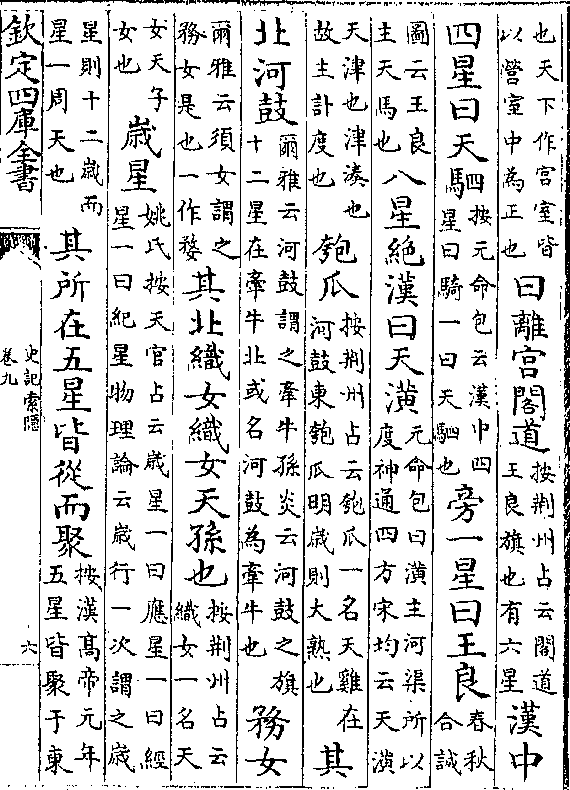 也天下作宫室皆
以營室中為正也
曰離宫閣道
按荆州占云閣道
王良旗也有六星
漢中
四星曰天駟
按元命包云漢中四
星曰騎一曰天駟也
旁一星曰王良
春秋
合誠
圖云王良
主天馬也
八星絶漢曰天潢
元命包曰潢主河渠所以
度神通四方宋均云天潢
天津也津湊也
故主計度也
匏瓜
按荆州占云匏瓜一名天雞在
河鼓東匏瓜明歲則大熟也
其
北河鼓
爾雅云河鼓謂之牽牛孫炎云河鼓之旗
十二星在牽牛北或名河鼓為牽牛也
務女
爾雅云須女謂之
務女是也一作婺
其北織女織女天孫也
按荆州占云
織女一名天
女天子
女也
歲星
姚氏按天官占云歲星一曰應星一曰經
星一曰紀星物理論云歲行一次謂之歲
星則十二歲而
星一周天也
其所在五星皆從而聚
按漢髙帝元年
五星皆聚于東
欽定四庫全書
史記索隱
卷九
六